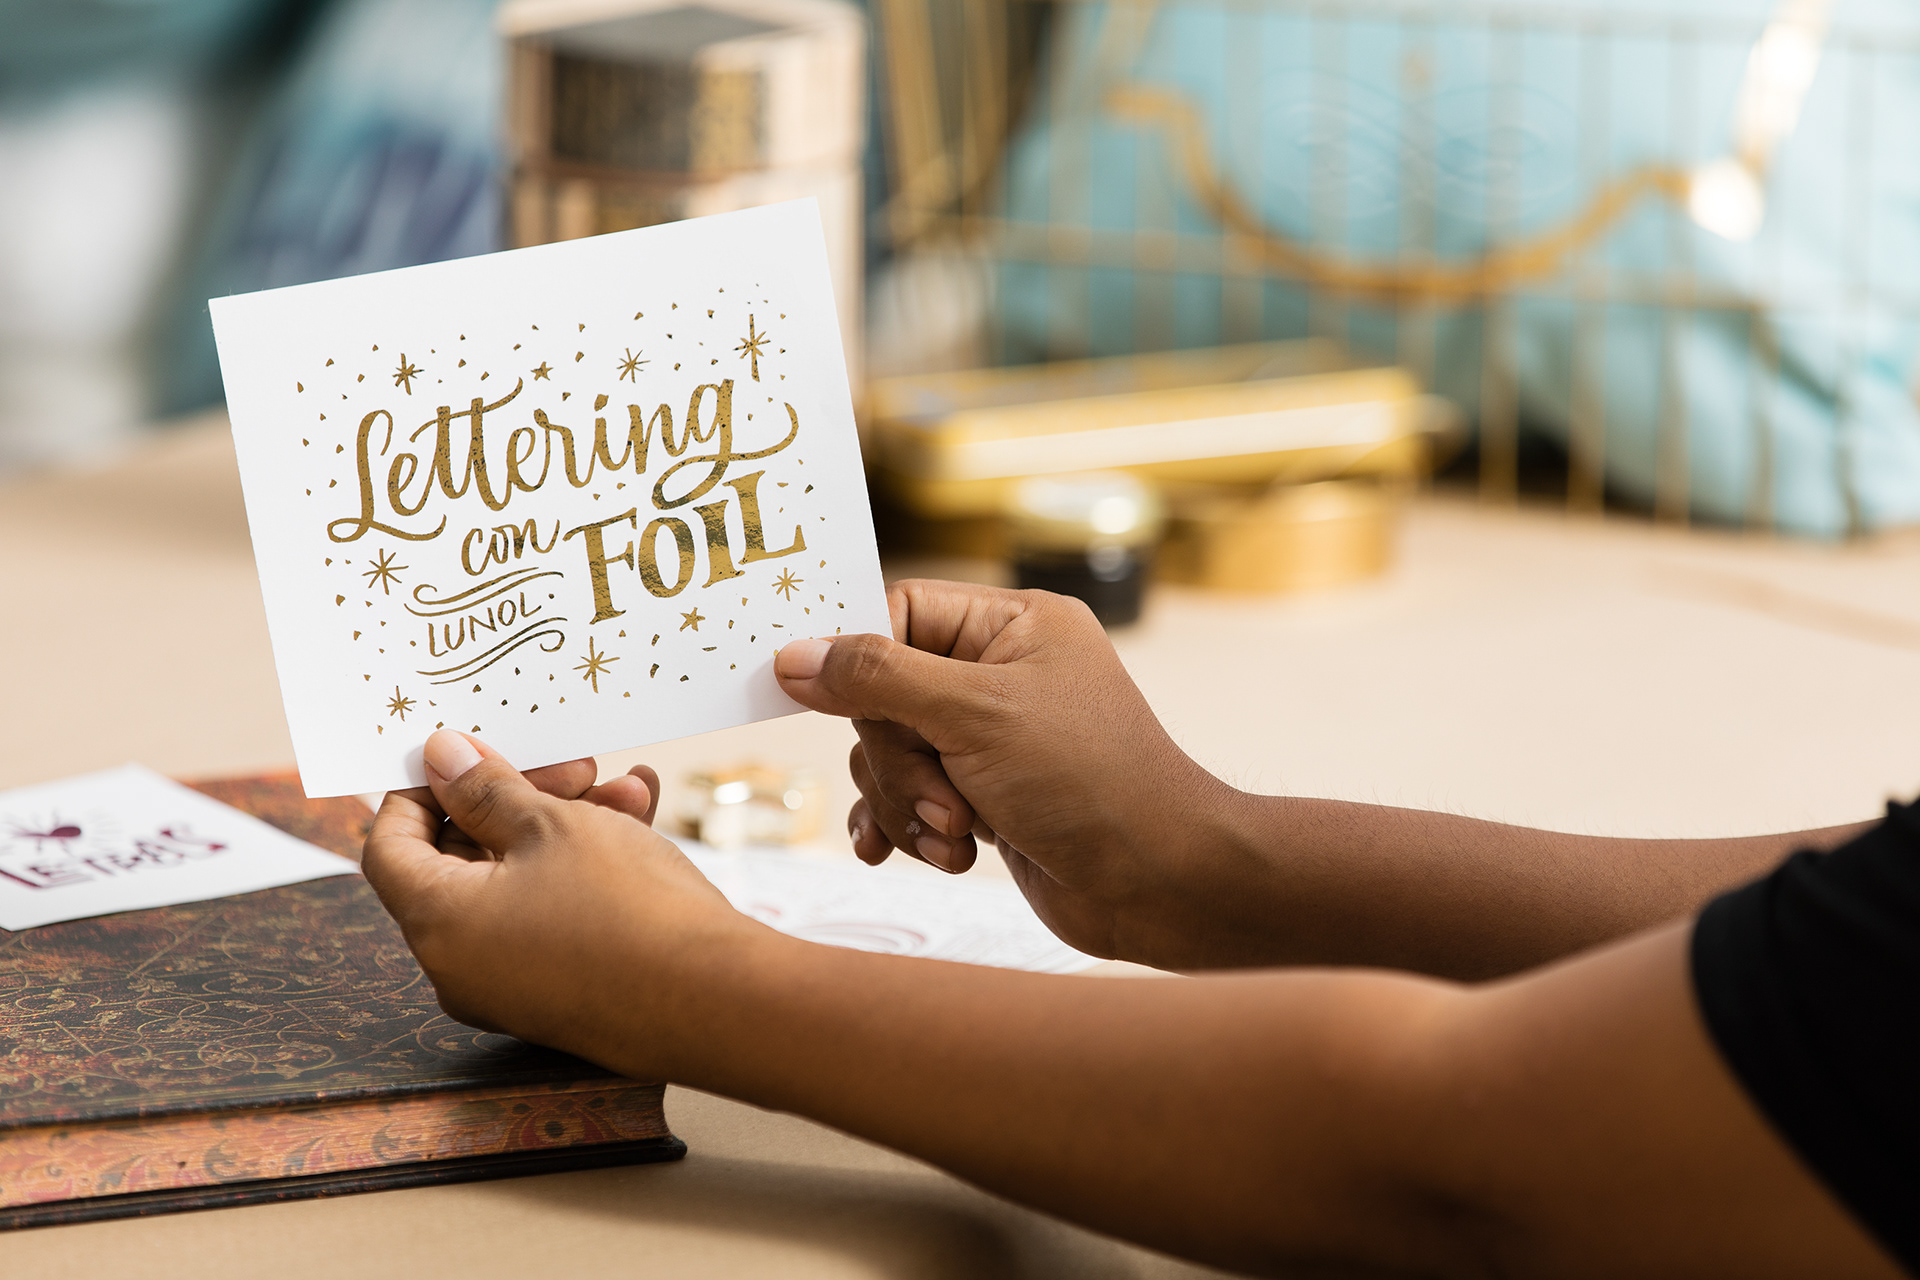 Lettering
con FOIL
LUNOL.
LETRAS